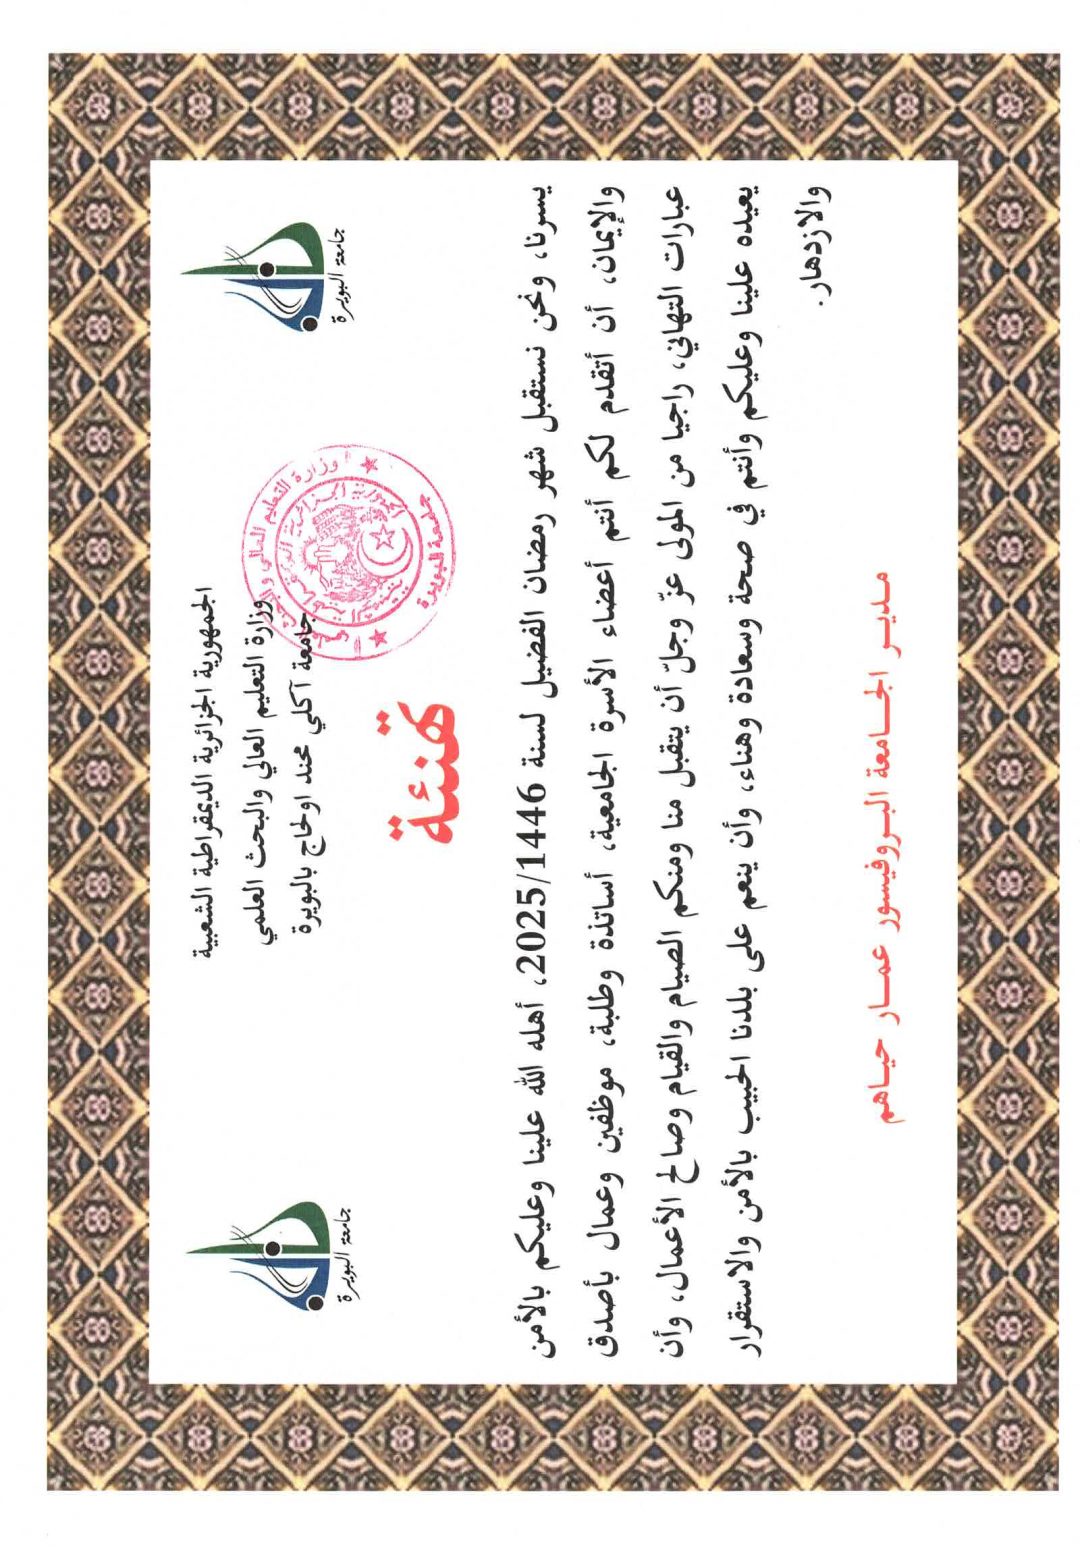 الجمهورية الجزائرية الديمقراطية الشعبية
وزارة التعليم العالي والبحث العلمي
جامعة آكلي محند اولحاج بالبويرة
جامعة البويرة
جامعة البويرة
جامعة البويرة
تهنئة
يسرنا، ونحن نستقبل شهر رمضان الفضيل لسنة 2025/1446، أهله الله علينا وعليكم بالأمن
والإيمان، أن أتقدم لكم أنتم أعضاء الأسرة الجامعية، أساتذة وطلبة، موظفين وعمال بأصدق
عبارات التهاني، راجيا من المولى عزّ وجلّ أن يتقبل منا ومنكم الصيام والقيام وصالح الأعمال، وأن
يعيده علينا وعليكم وأنتم في صحة وسعادة وهناء، وأن ينعم على بلدنا الحبيب بالأمن والاستقرار
والازدهار.
مديـر الجـامعة البـروفيسور عمـار حيـاهم